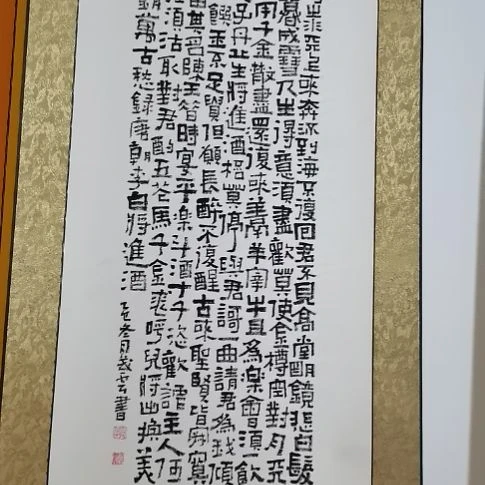 來奔流到海不復回君不見高堂明鏡悲白髮
暮成雪人生得意須盡歡莫使金樽空對月天
用千金散盡還復來烹羊宰牛且為樂會須一飲
子丹丘生將進酒杯莫停與君歌一曲請君為我傾
饌玉不足貴但願長醉不復醒古來聖賢皆寂寞
留其名陳王昔時宴平樂斗酒十千恣歡謔主人何
須沽取對君酌五花馬千金裘呼兒將出換美
銷萬古愁錄唐朝李白將進酒
月 書